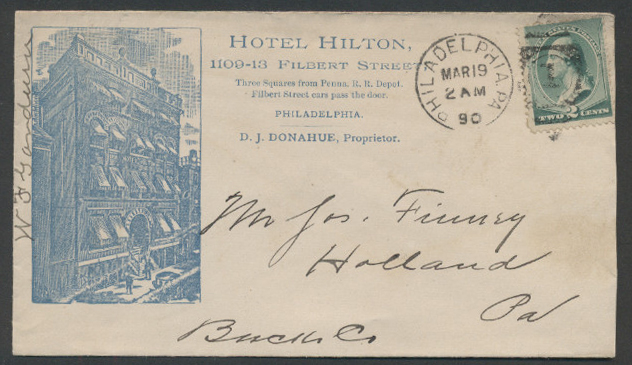 HOTEL HILTON,
1109-13 FILBERT STREET
Three Squares from Penna. R. R. Depot.
Filbert Street cars pass the door.
PHILADELPHIA.
D. J. DONAHUE, Proprietor.
PHILADELPHIA, PA
MAR 19
2 AM
90
TWO 2 CENTS
Mr Jos. Finney
Holland
Pa
Bucks Co